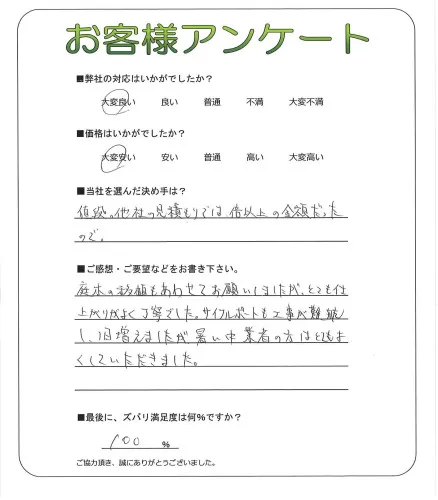 お客様アンケート
■弊社の対応はいかがでしたか？
大変良い 良い 普通 不満 大変不満
■価格はいかがでしたか？
大変安い 安い 普通 高い 大変高い
■当社を選んだ決め手は？
値段。他社の見積もりでは倍以上の金額だった
ので。
■ご感想・ご要望などをお書き下さい。
庭木の移植もあわせてお願いしましたが、とても仕
上がりがよく丁寧でした。サイクルポートも工事が難航
し、1日増えましたが、暑い中業者の方は
くしていただきました。
■最後に、ズバリ満足度は何%ですか？
100 %
ご協力頂き、誠にありがとうございました。